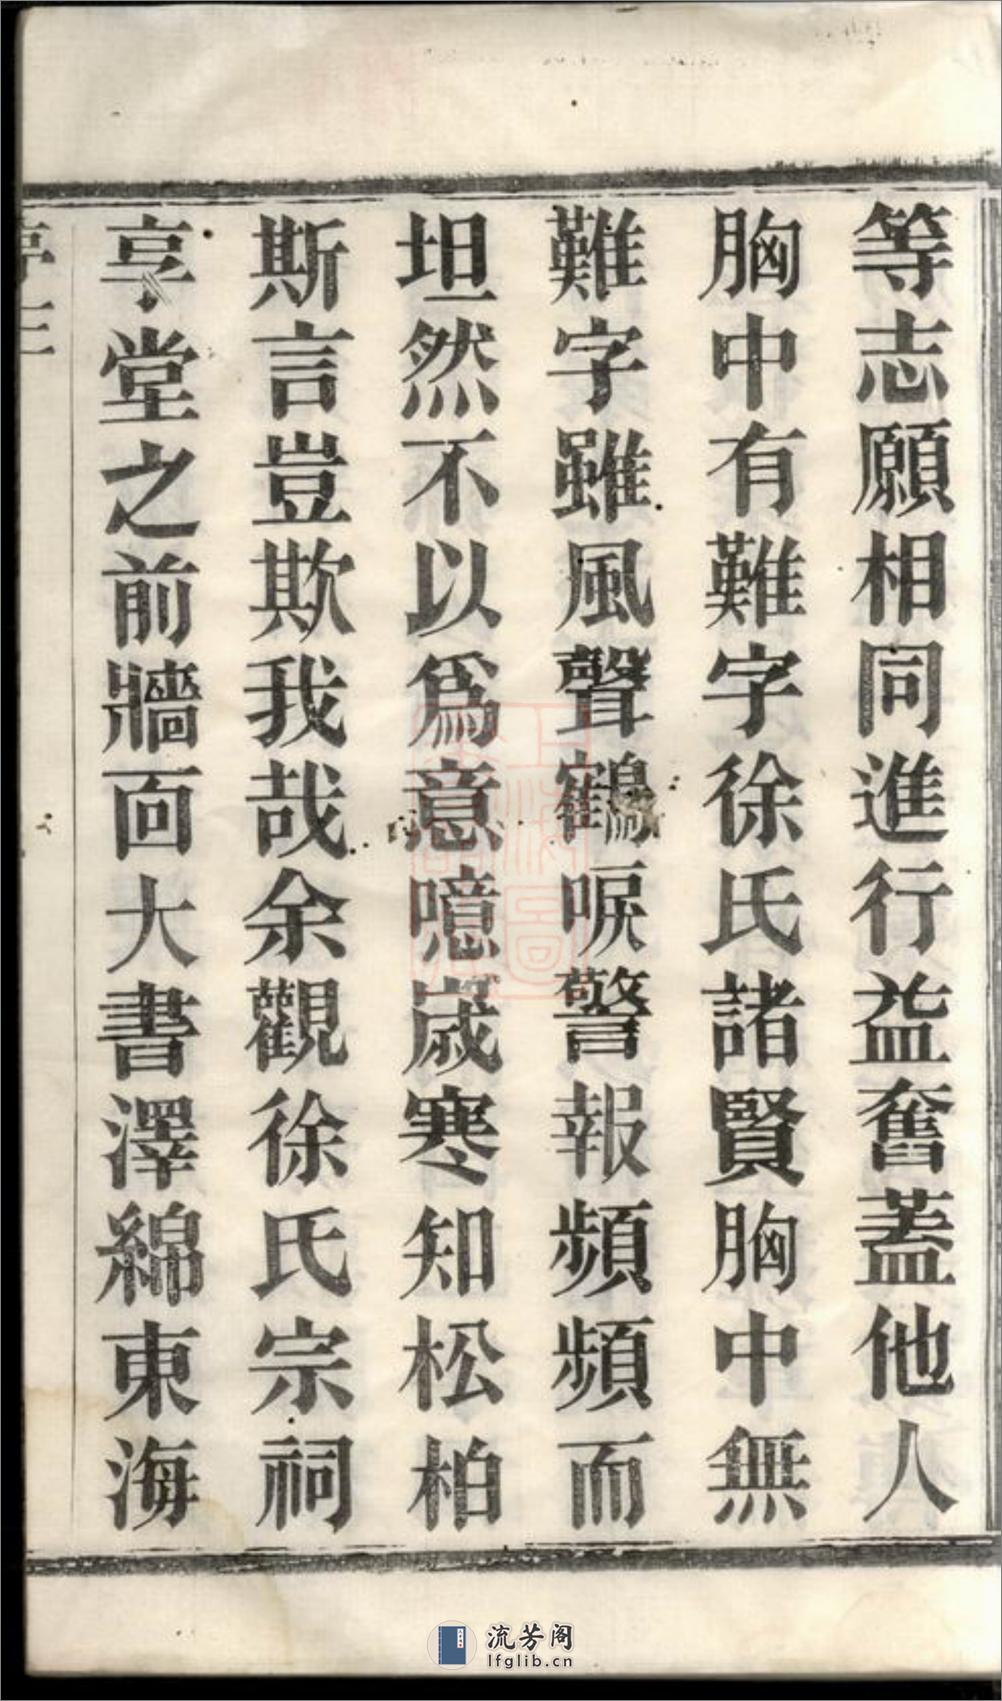 等志願相同進行益奮蓋他人
胸中有難字徐氏諸賢胸中無
難字雖風聲鶴唳警報頻頻而
坦然不以爲意噫歲寒知松柏
斯言豈欺我哉余觀徐氏宗祠
享堂之前牆面大書澤綿東海
流芳阁
lfglib.cn